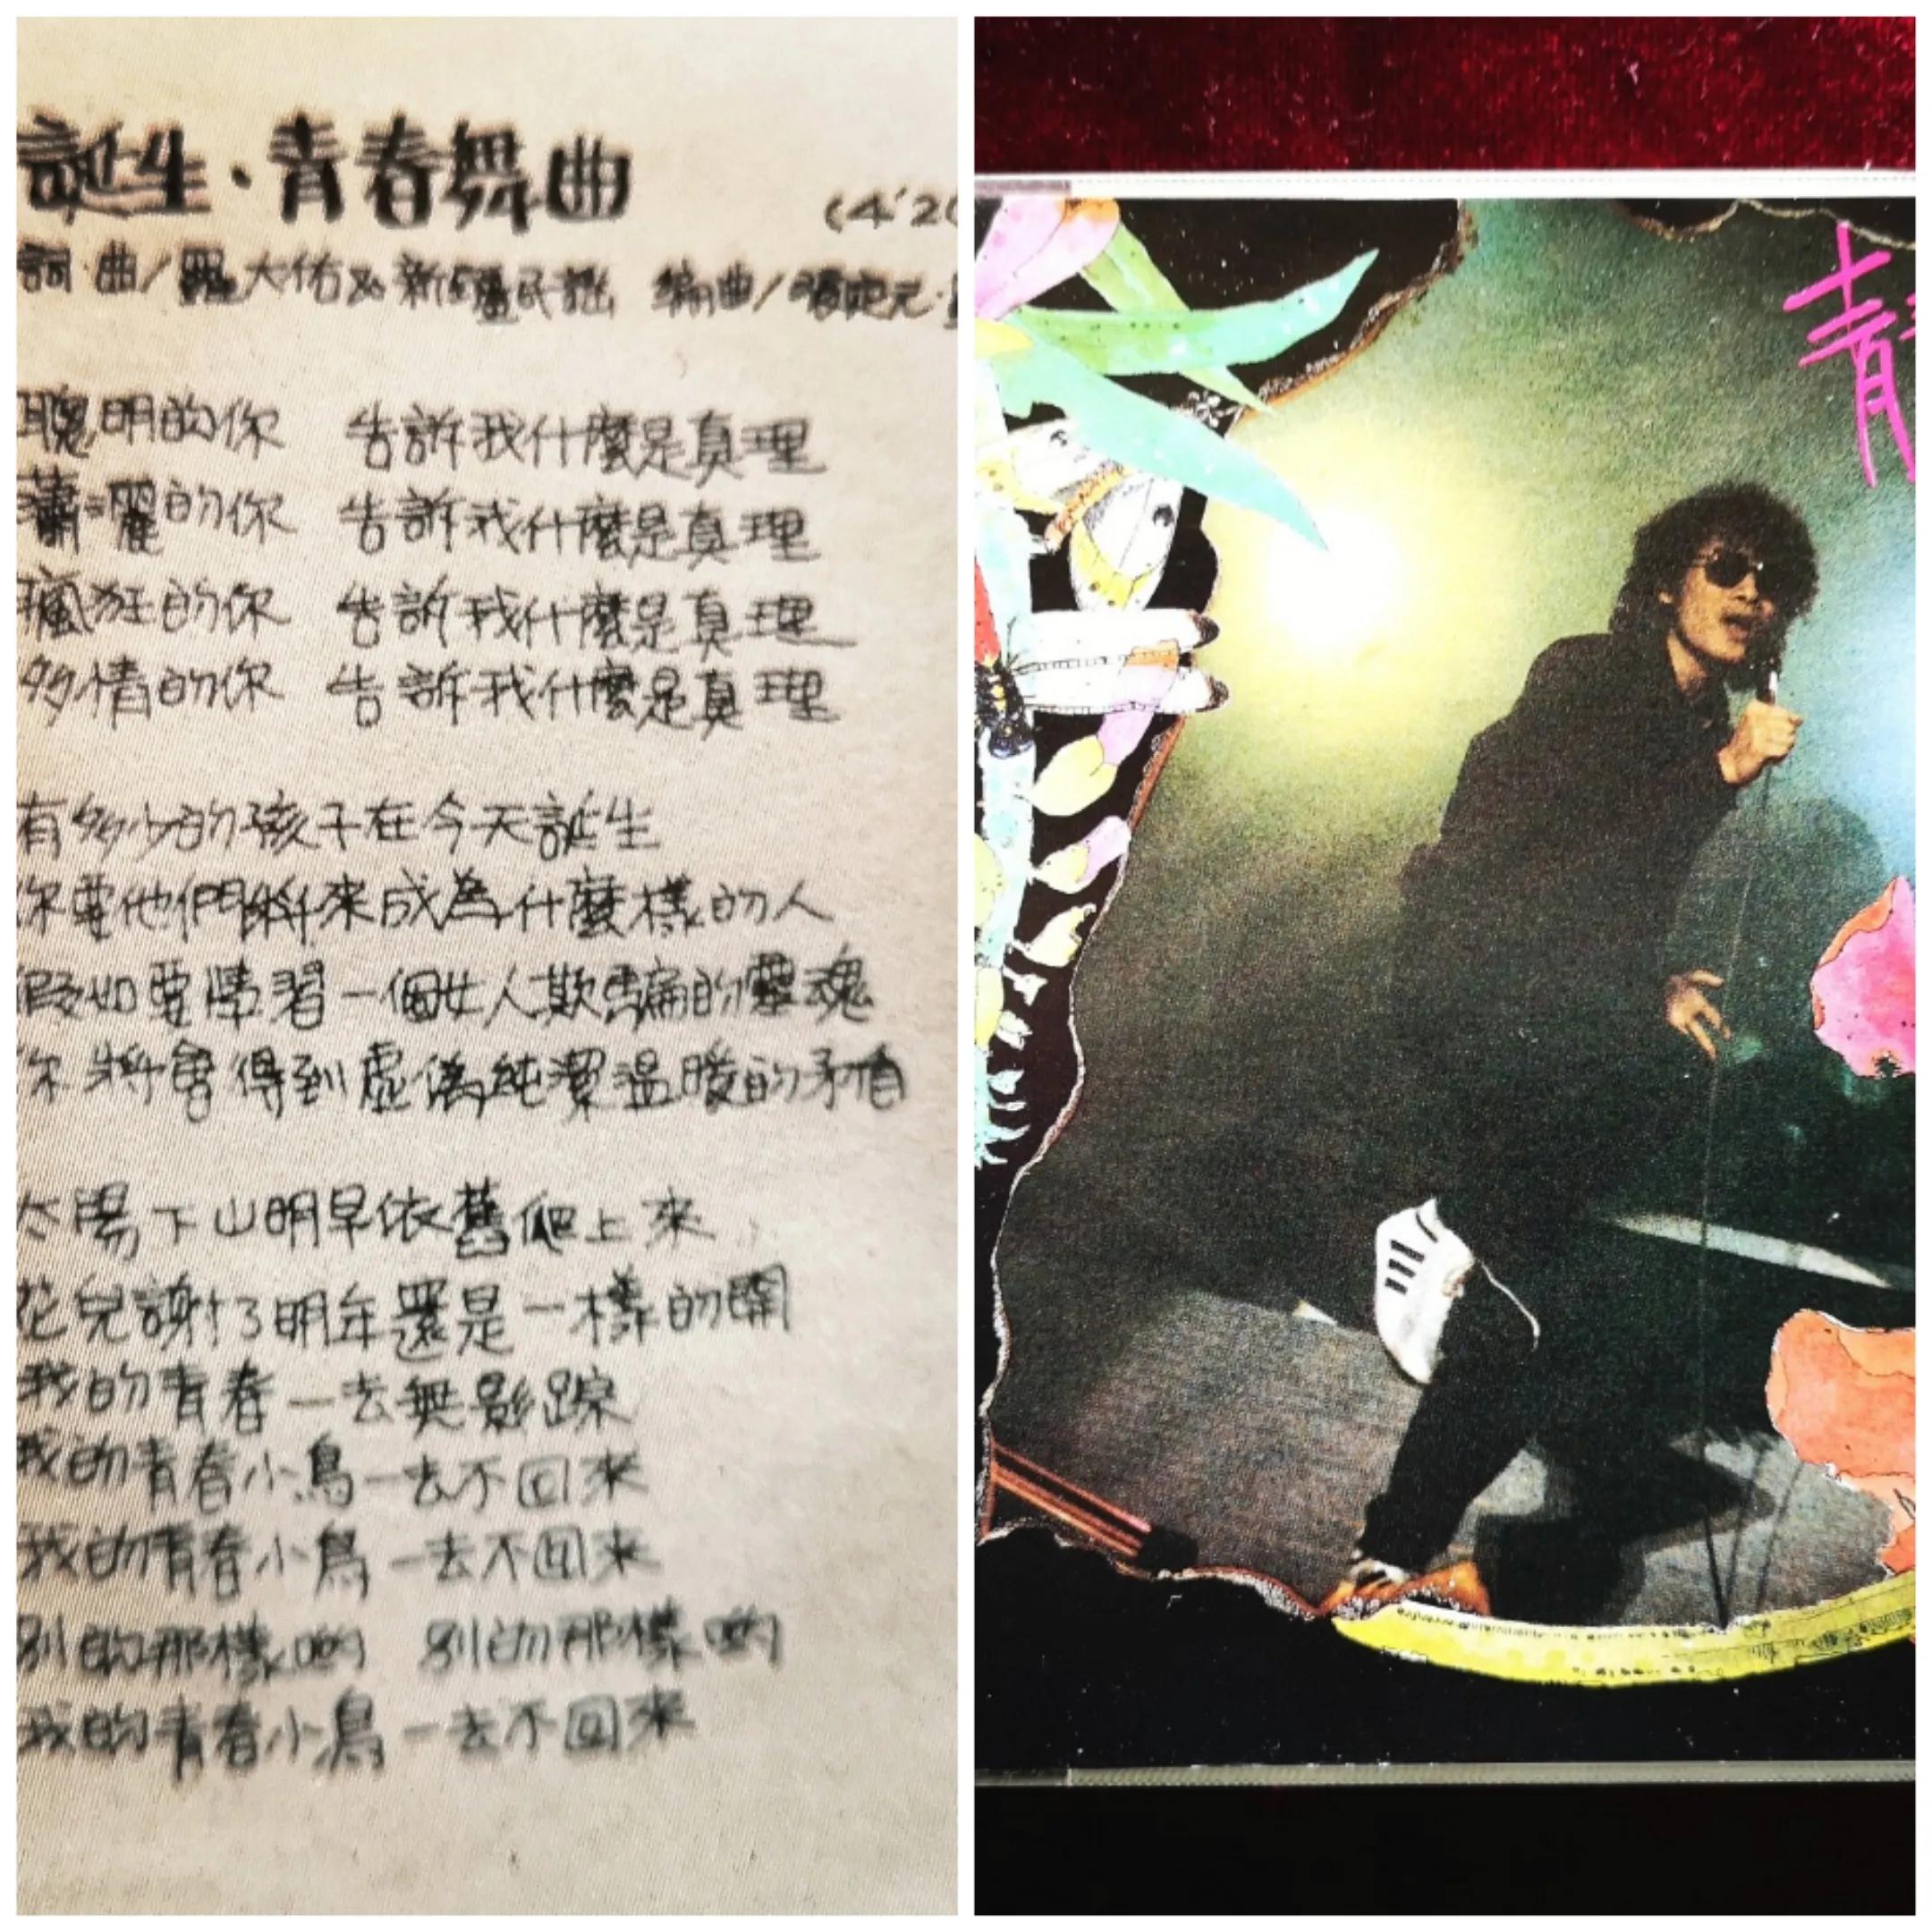 誕生·青春舞曲
(4'20
詞·曲/羅大佑&新疆民謠 編曲/
聰明的你 告訴我什麼是真理
瀟灑的你 告訴我什麼是真理
瘋狂的你 告訴我什麼是真理
多情的你 告訴我什麼是真理
有多少的孩子在今天誕生
你要他們將來成為什麼樣的人
假如要學習一個女人欺騙的靈魂
你將會得到虛偽純潔溫暖的矛盾
太陽下山明早依舊爬上來
花兒謝了明年還是一樣的開
我的青春一去無影蹤
我的青春小鳥一去不回來
我的青春小鳥一去不回來
別的那樣喲 別的那樣喲
我的青春小鳥一去不回來
青